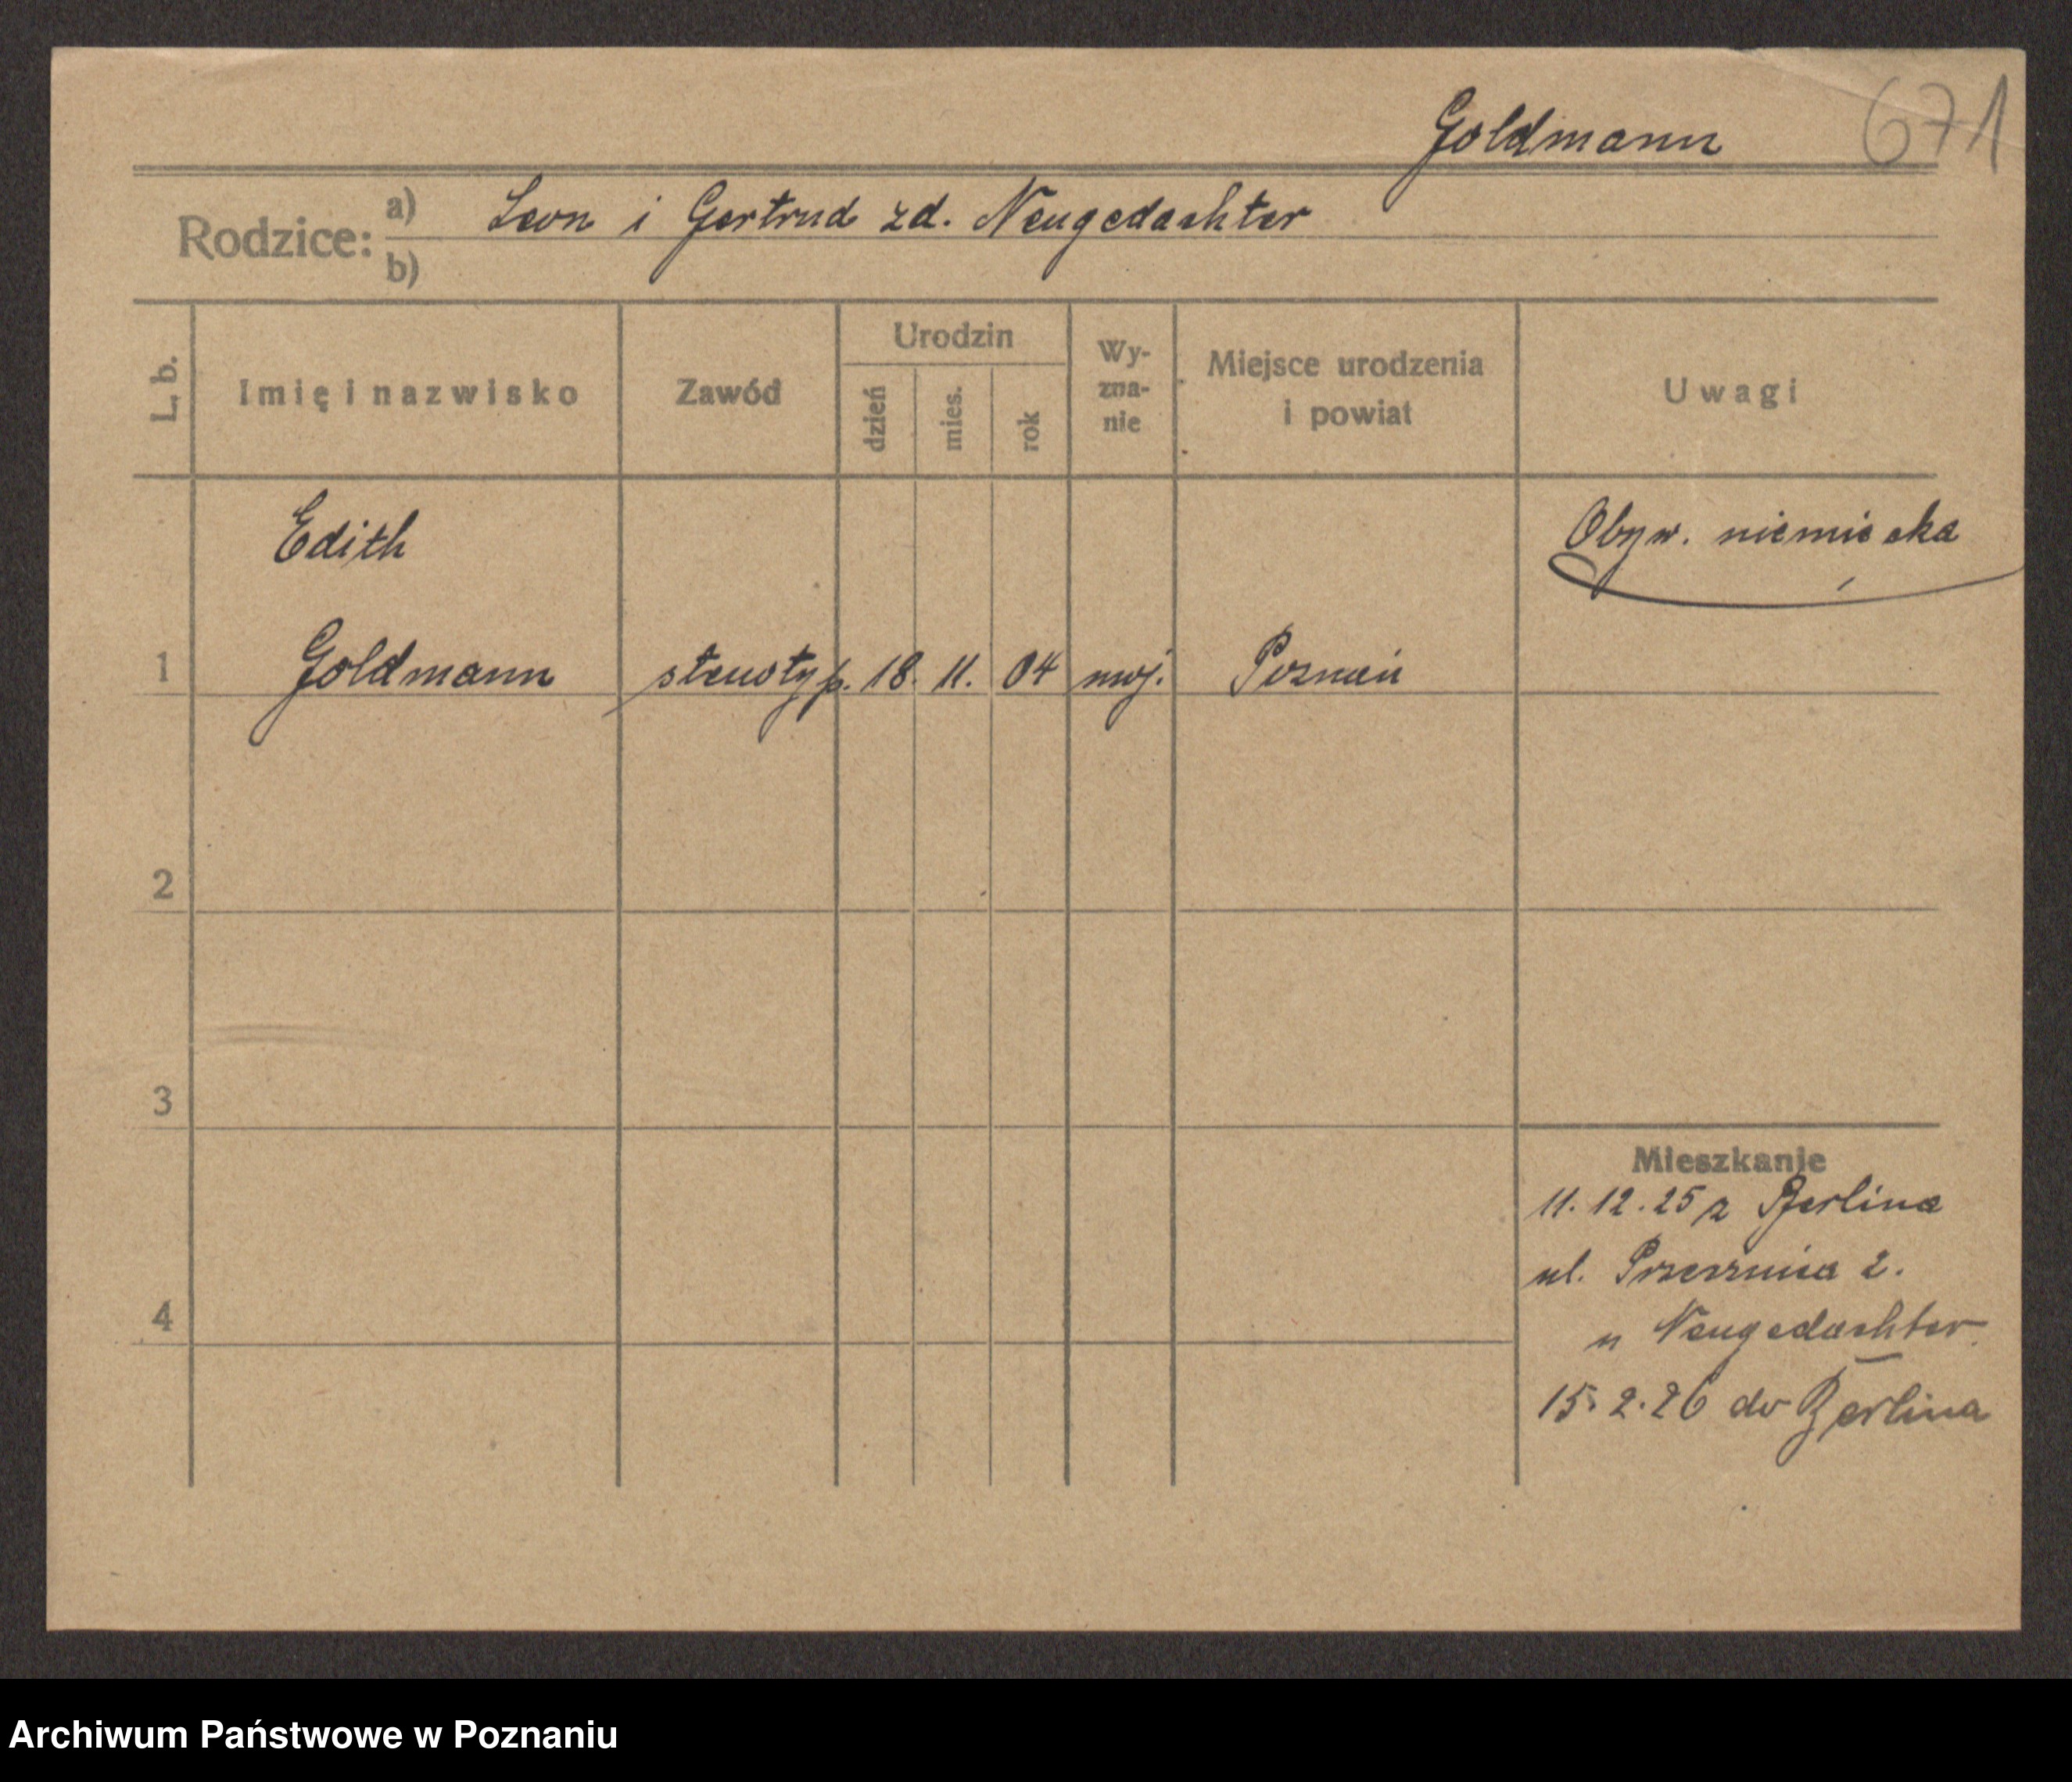 Goldmann 671
Rodzice: a) Leon i Gertrud zd. Neugedachter
b)
L. b. Imię i nazwisko Zawód Urodzin dzień mies. rok Wy-zna-nie Miejsce urodzenia i powiat Uwagi
Edith Obyw. niemiecka
1 Goldmann stenotyp. 18. 11. 04 moj. Poznań
2
3
Mieszkanie
11. 12. 25 z Berlina
ul. 2.
4
u Neugedachter
15. 2. 26 do Berlina
Archiwum Państwowe w Poznaniu